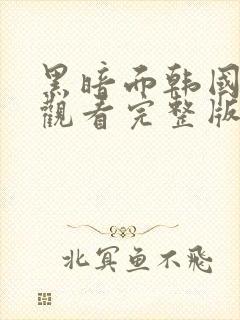 黑暗而韩國
觀看完整版
北冥鱼不飛